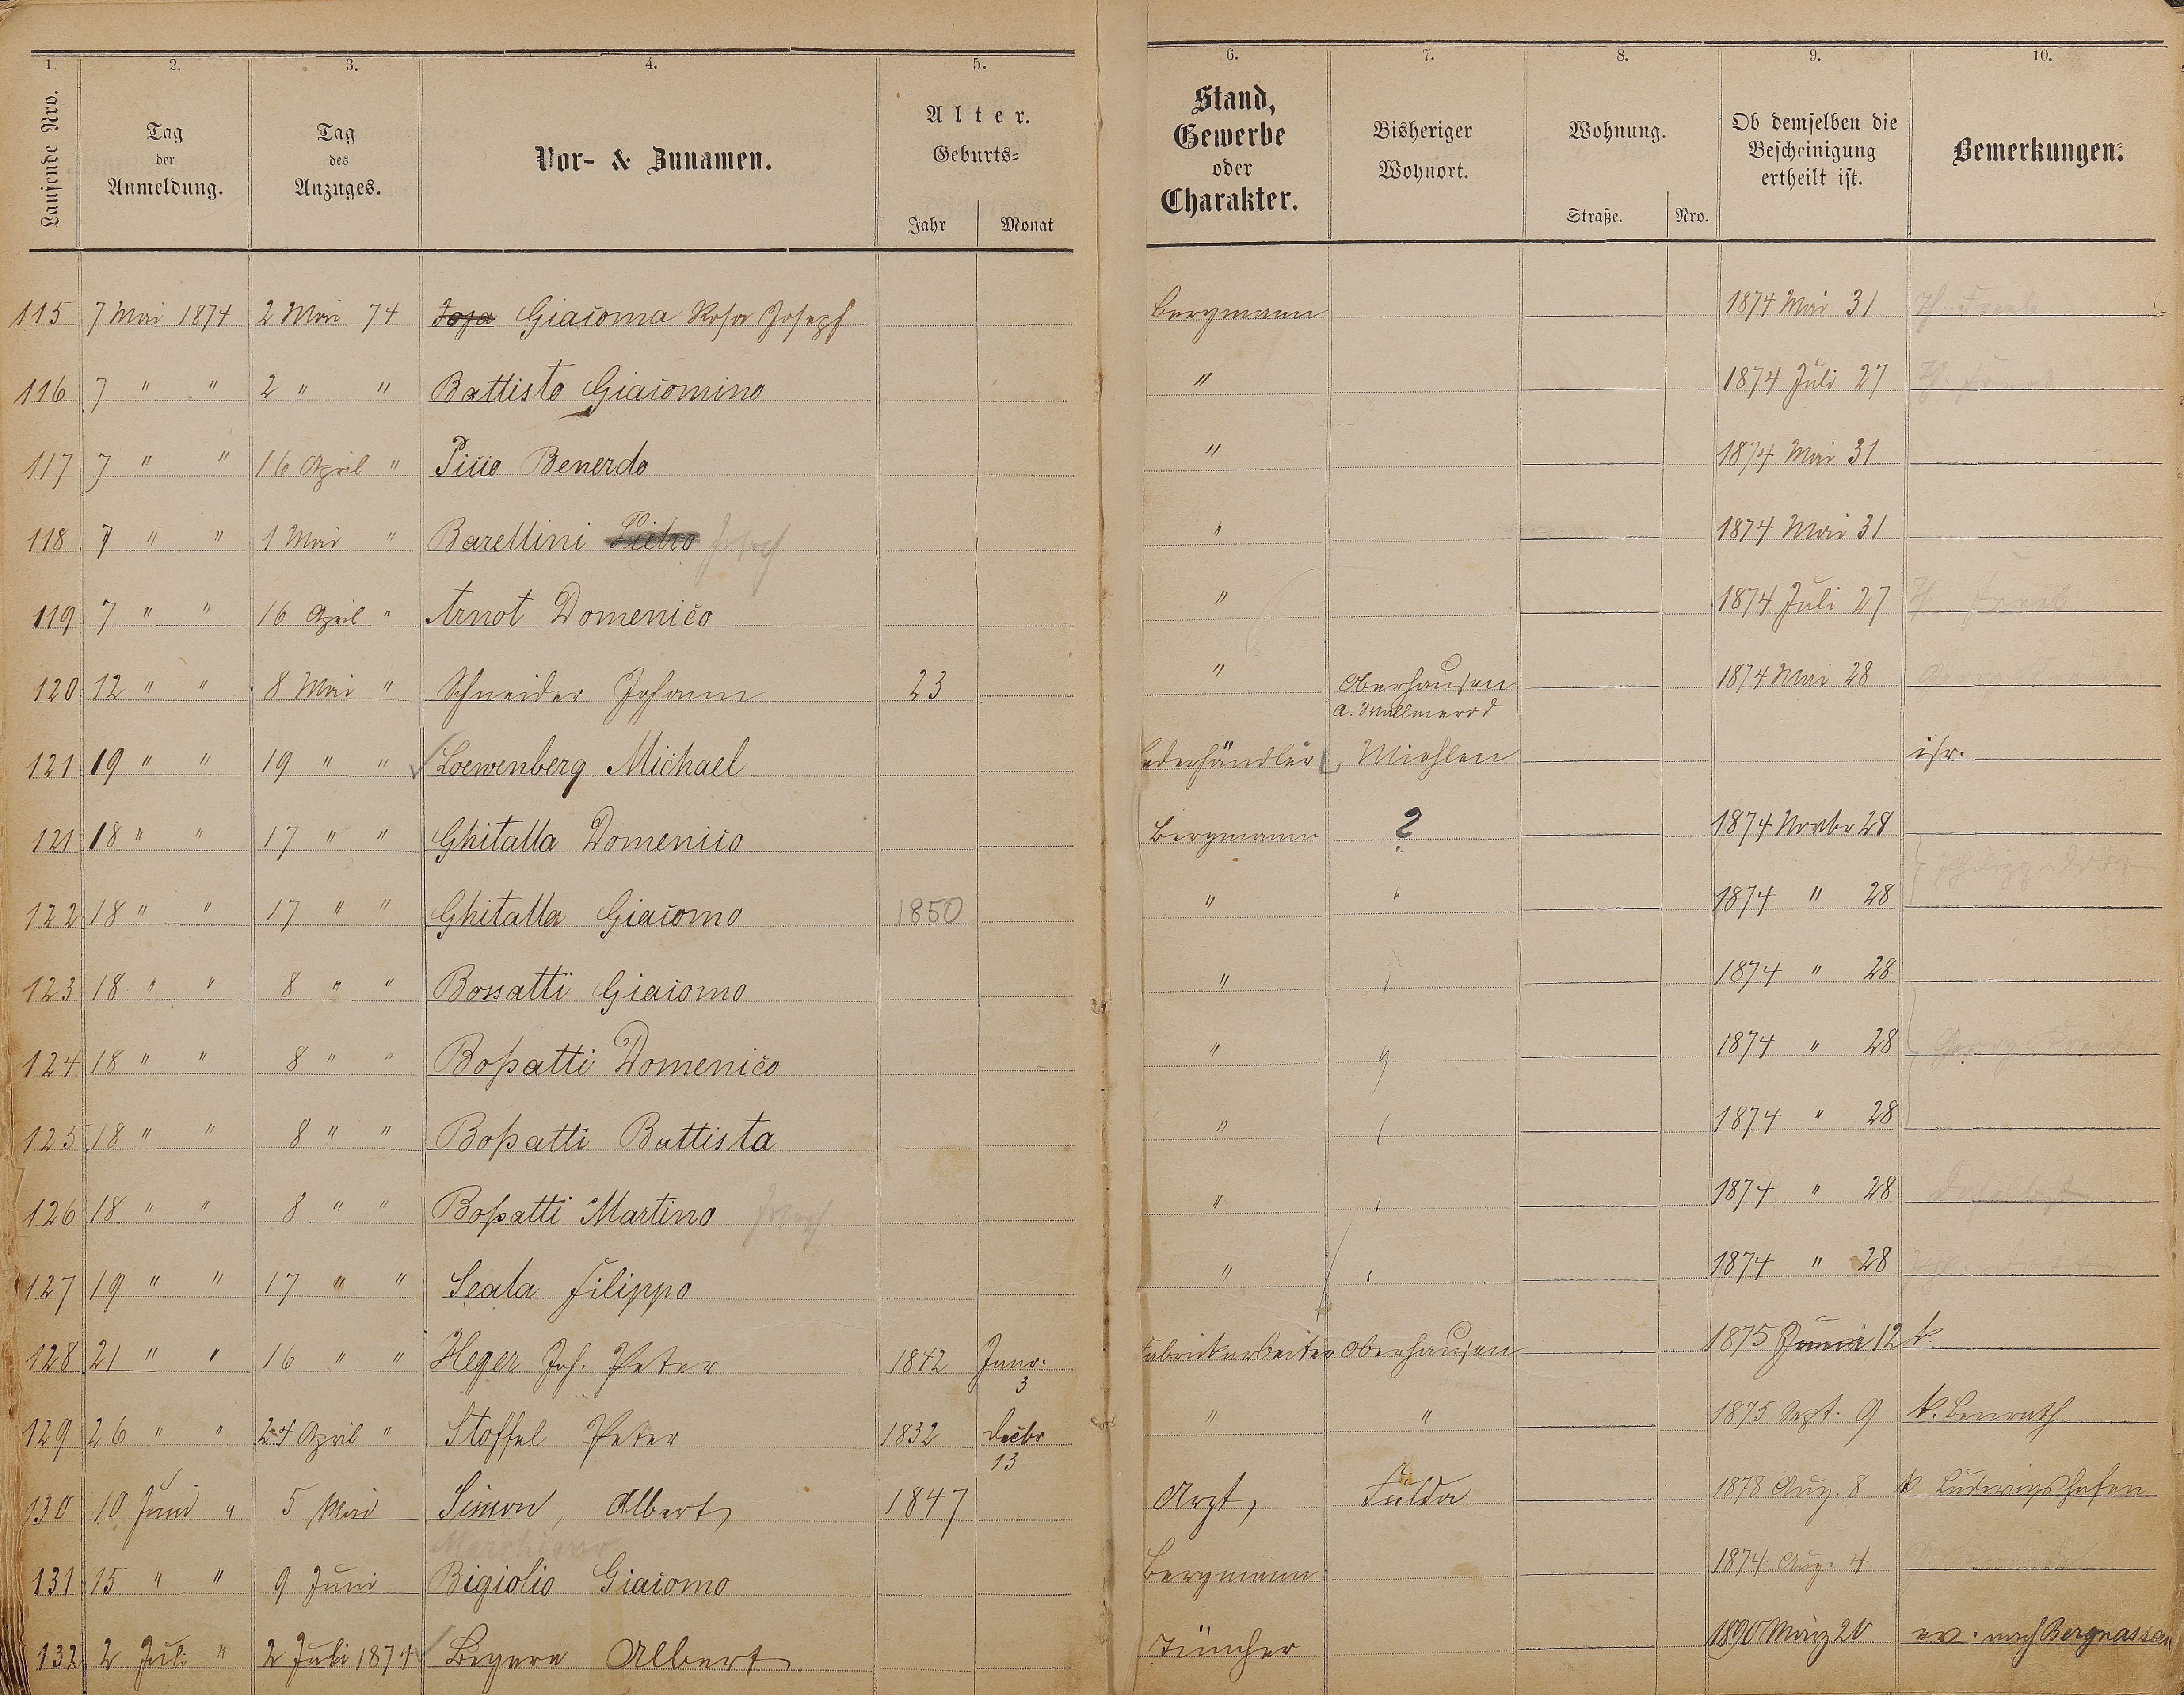 1. 2. 3. 4. 5. 6. 7. 8. 9. 10.
Laufende Nro. Tag der Anmeldung. Tag des Anzuges. Vor- & Zunamen. Alter. Geburts= Jahr Monat Stand, Gewerbe oder Charakter. Bisheriger Wohnort. Wohnung. Straße. Nro. Ob demselben die Bescheinigung ertheilt ist. Bemerkungen.
115 7 Mai 1874 2 Mai 74 Giacoma Rosa Joseph Bergmann 1874 Mai 31
116 7 " " 2 " " Battisto Giacomino " 1874 Juli 27
117 7 " " 16 April " Picco Benerdo " 1874 Mai 31
118 7 " " 1 Mai " Barellini Pietro Joseph " 1874 Mai 31
119 7 " " 16 April " Arnot Domenico " 1874 Juli 27
120 12 " " 8 Mai " Schneider Johann 23 " Oberhausen 1874 Mai 28
a. Wallmerod
121 19 " " 19 " " Loewenberg Michael Lederhändler Miehlen isr.
121 18 " " 17 " " Ghitalla Domenico Bergmann ? 1874 Novbr 28
122 18 " " 17 " " Ghitalla Giacomo 1850 " " 1874 " 28
123 18 " " 8 " " Bossatti Giacomo " 1874 " 28
124 18 " " 8 " " Boßatti Domenico " 1874 " 28 Georg
125 18 " " 8 " " Boßatti Battista " 1874 " 28
126 18 " " 8 " " Boßatti Martino Joseph " 1874 " 28
127 19 " " 17 " " Seala Filippo " 1874 " 28
128 21 " " 16 " " Heger Joh. Peter 1842 Janr. 3 Fabrikarbeiter Oberhausen 1875 Juni 12 k.
129 26 " " 24 April " Stoffel Peter 1832 Decbr 13 " " 1875 Sept. 9 k. Benrath
130 10 Juni " 5 Mai Simon, Albert 1847 Arzt Fulda 1878 Aug. 8 k Ludwigshafen
131 15 " " 9 Juni Bigiolio Giacomo Bergmann 1874 Aug. 4
132 2 Juli " 2 Juli 1874 Albert Tüncher 1890 März 20 ev. nach Bergnassau